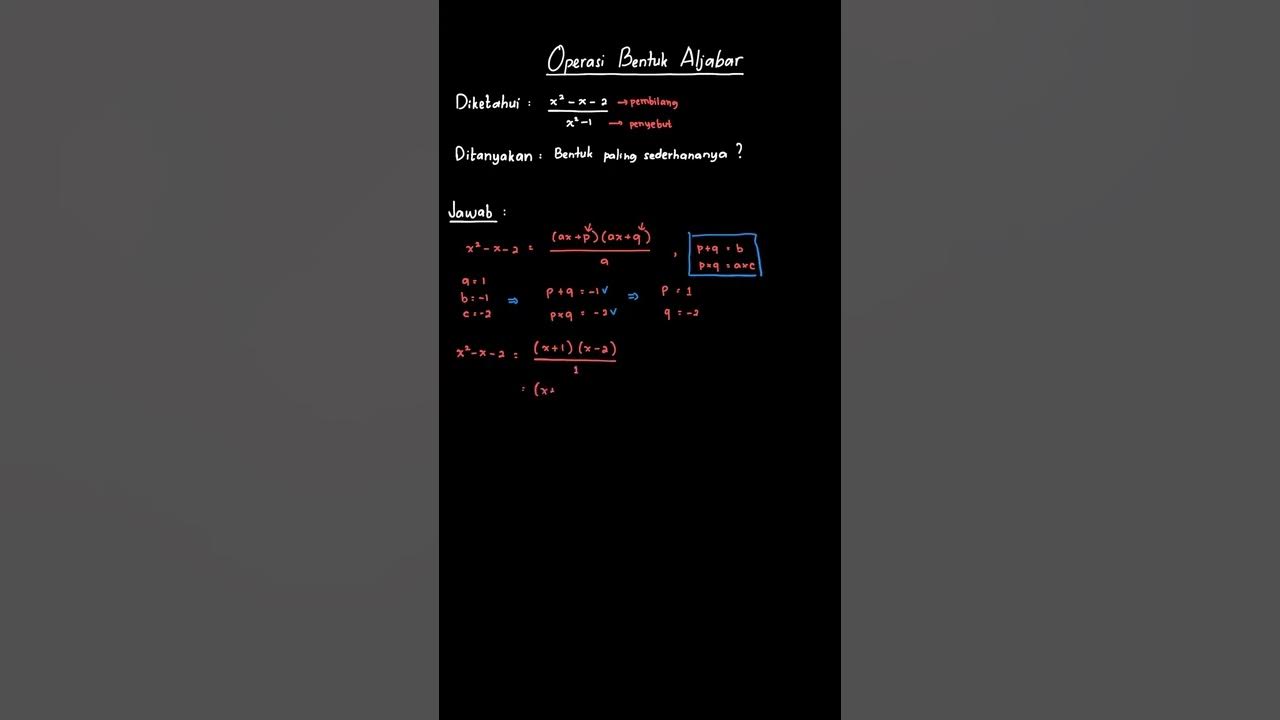 Operasi Bentuk Aljabar
Diketahui : x² - x - 2 → pembilang
x² - 1 → penyebut
Ditanyakan : Bentuk paling sederhananya ?
Jawab :
x² - x - 2 = (ax + p)(ax + q) , p + q = b
a p × q = a × c
a = 1
b = -1 ⇒ p + q = -1 ✓ ⇒ p = 1
c = -2 p × q = -2 ✓ q = -2
x² - x - 2 = (x + 1) (x - 2)
1
= (x +